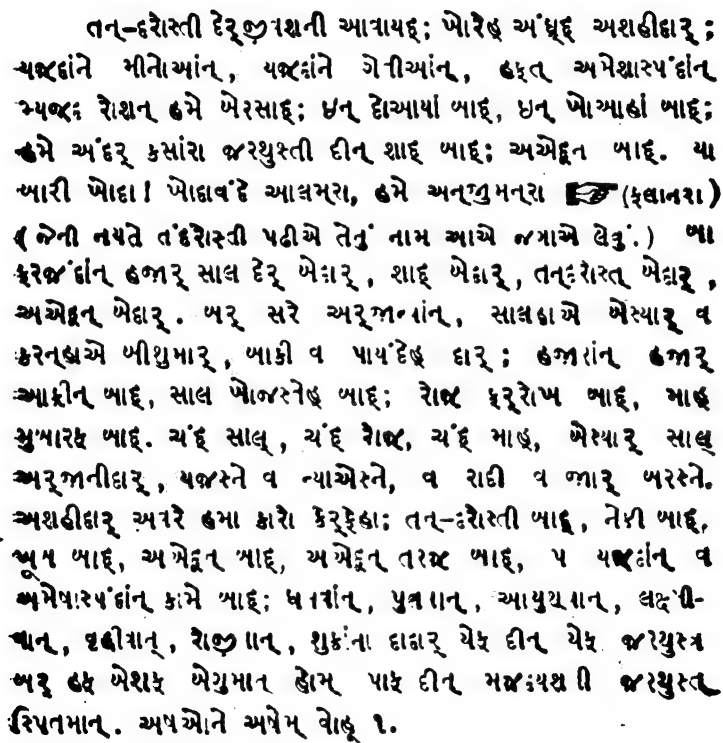 તન્-દરોસ્તી દેર્જીવશની આવાયદ્; ખોરેહ અંધૂદ્ અશહીદાર્;
યજદાંને મીનોઆંન્, યજદાંને ગેતીઆંન્, હફ્ત્ અમેશાસ્પંદાંન્
મ્યજદ રોશન્ હમે બેરસાદ્; ઇન્ દોઆયાં બાદ્, ઇન્ ખોઆહાં બાદ્;
હમે અંદર્ કસાંરા જરથુસ્તી દીન્ શાદ્ બાદ્; અએદૂન બાદ્. યા
બારી ખોદા! ખોદાવંદે આલમ્રા, હમે અન્જુમન્રા ☞ (ફલાનરા)
(જેની નયતે તંદરોસ્તી પઢીએ તેનું નામ આએ જગાએ લેવું.) બા
ફરજંદાંન્ હજાર્ સાલ દેર્ બેદાર્, શાદ્ બેદાર્, તન્દરોસ્ત્ બેદાર્,
અએદૂન્ બેદાર્. બર્ સરે અર્જાન્યાંન્, સાલહાએ બેસ્યાર્ વ
કરનહાએ બીશુમાર્, બાકી વ પાયંદેહ્ દાર્; હજારાંન્ હજાર્
આફ્રીન્ બાદ્, સાલ ખોજસ્તેહ્ બાદ્; રોજ ફર્રોખ બાદ્, માહ્
મુબારક બાદ્. ચંદ્ સાલ્, ચંદ્ રોજ, ચંદ્ માહ્, બેસ્યાર્ સાલ્
અર્જાનીદાર્, યજસ્ને વ ન્યાએસ્ને, વ રાદી વ જોર્ બરસ્ને.
અશહીદાર્ અવરે હમા કારો કેર્ફેહા; તન્-દરોસ્તી બાદ્, નેકી બાદ્,
ખૂબ બાદ્, અએદૂન્ બાદ્, અએદૂન્ તરજ બાદ્, પ યજદાંન્ વ
અમેષાસ્પંદાંન્ કામે બાદ્; ધનવાંન્, પુત્રવાન્, આયુષવાન્, લક્ષ્મી-
વાન્, વૃદ્ધીવાન્, રોજીવાન્, શુક્રાંના દાદાર્ યેક્ દીન્ યેક્ જરથુસ્ત્ર
બર્ હક્ બેશક્ બેગુમાન હોમ્ પાક્ દીન્ મજદયશની જરથુસ્ત્
સ્પિતમાન્. અષઓને અષેમ્ વોહૂ ૧.